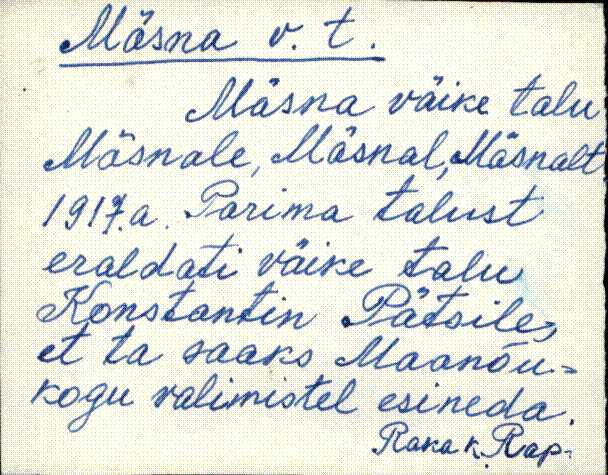 Mäsna v. t.
Mäsna väike talu
Mäsnale, Mäsnal, Mäsnalt.
1917.a. Parima talust
eraldati väike talu
Konstantin Pätsile,
et ta saaks Maanõu-
kogu valimistel esineda.
Raka k. Rap.